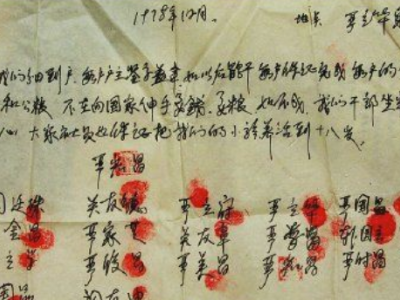 1978年12月. 地点 严立华
我们分田到户 每户户主签字盖章 如以后能干 每户保证完成每户的
和公粮 不在向国家伸手要钱要粮 如不成 我们干部坐
心 大家社员也保证把我们的小孩养活到十八岁.
严宏昌
关廷珠 关友德 严立符 严立华 严国昌
金昌 严家芝 关友章 严学昌
立学 严俊昌 严美昌 严付昌